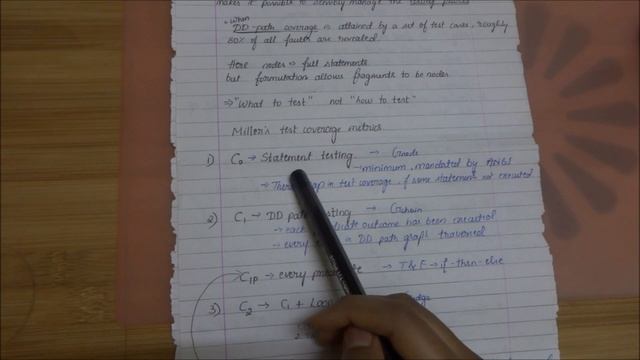 makes it possible to
manage the testing process
When
DD-path coverage is attained by a set of test cases, roughly
80% of all faults are revealed.
Here nodes → full statements
but formulation allows fragments to be nodes
⇒ "What to test" not "how to test"
Miller's test coverage metrics
1) C₀ → Statement testing → Gnode
→ minimum, mandated by ANSI
→ There gap in test coverage if some statement not executed
2) C₁ → DD path testing → Gchain
→ each outcome has been executed
→ every DD path graph traversed
C1P → every → T & F → if-then-else
3) C₂ → C₁ +
2